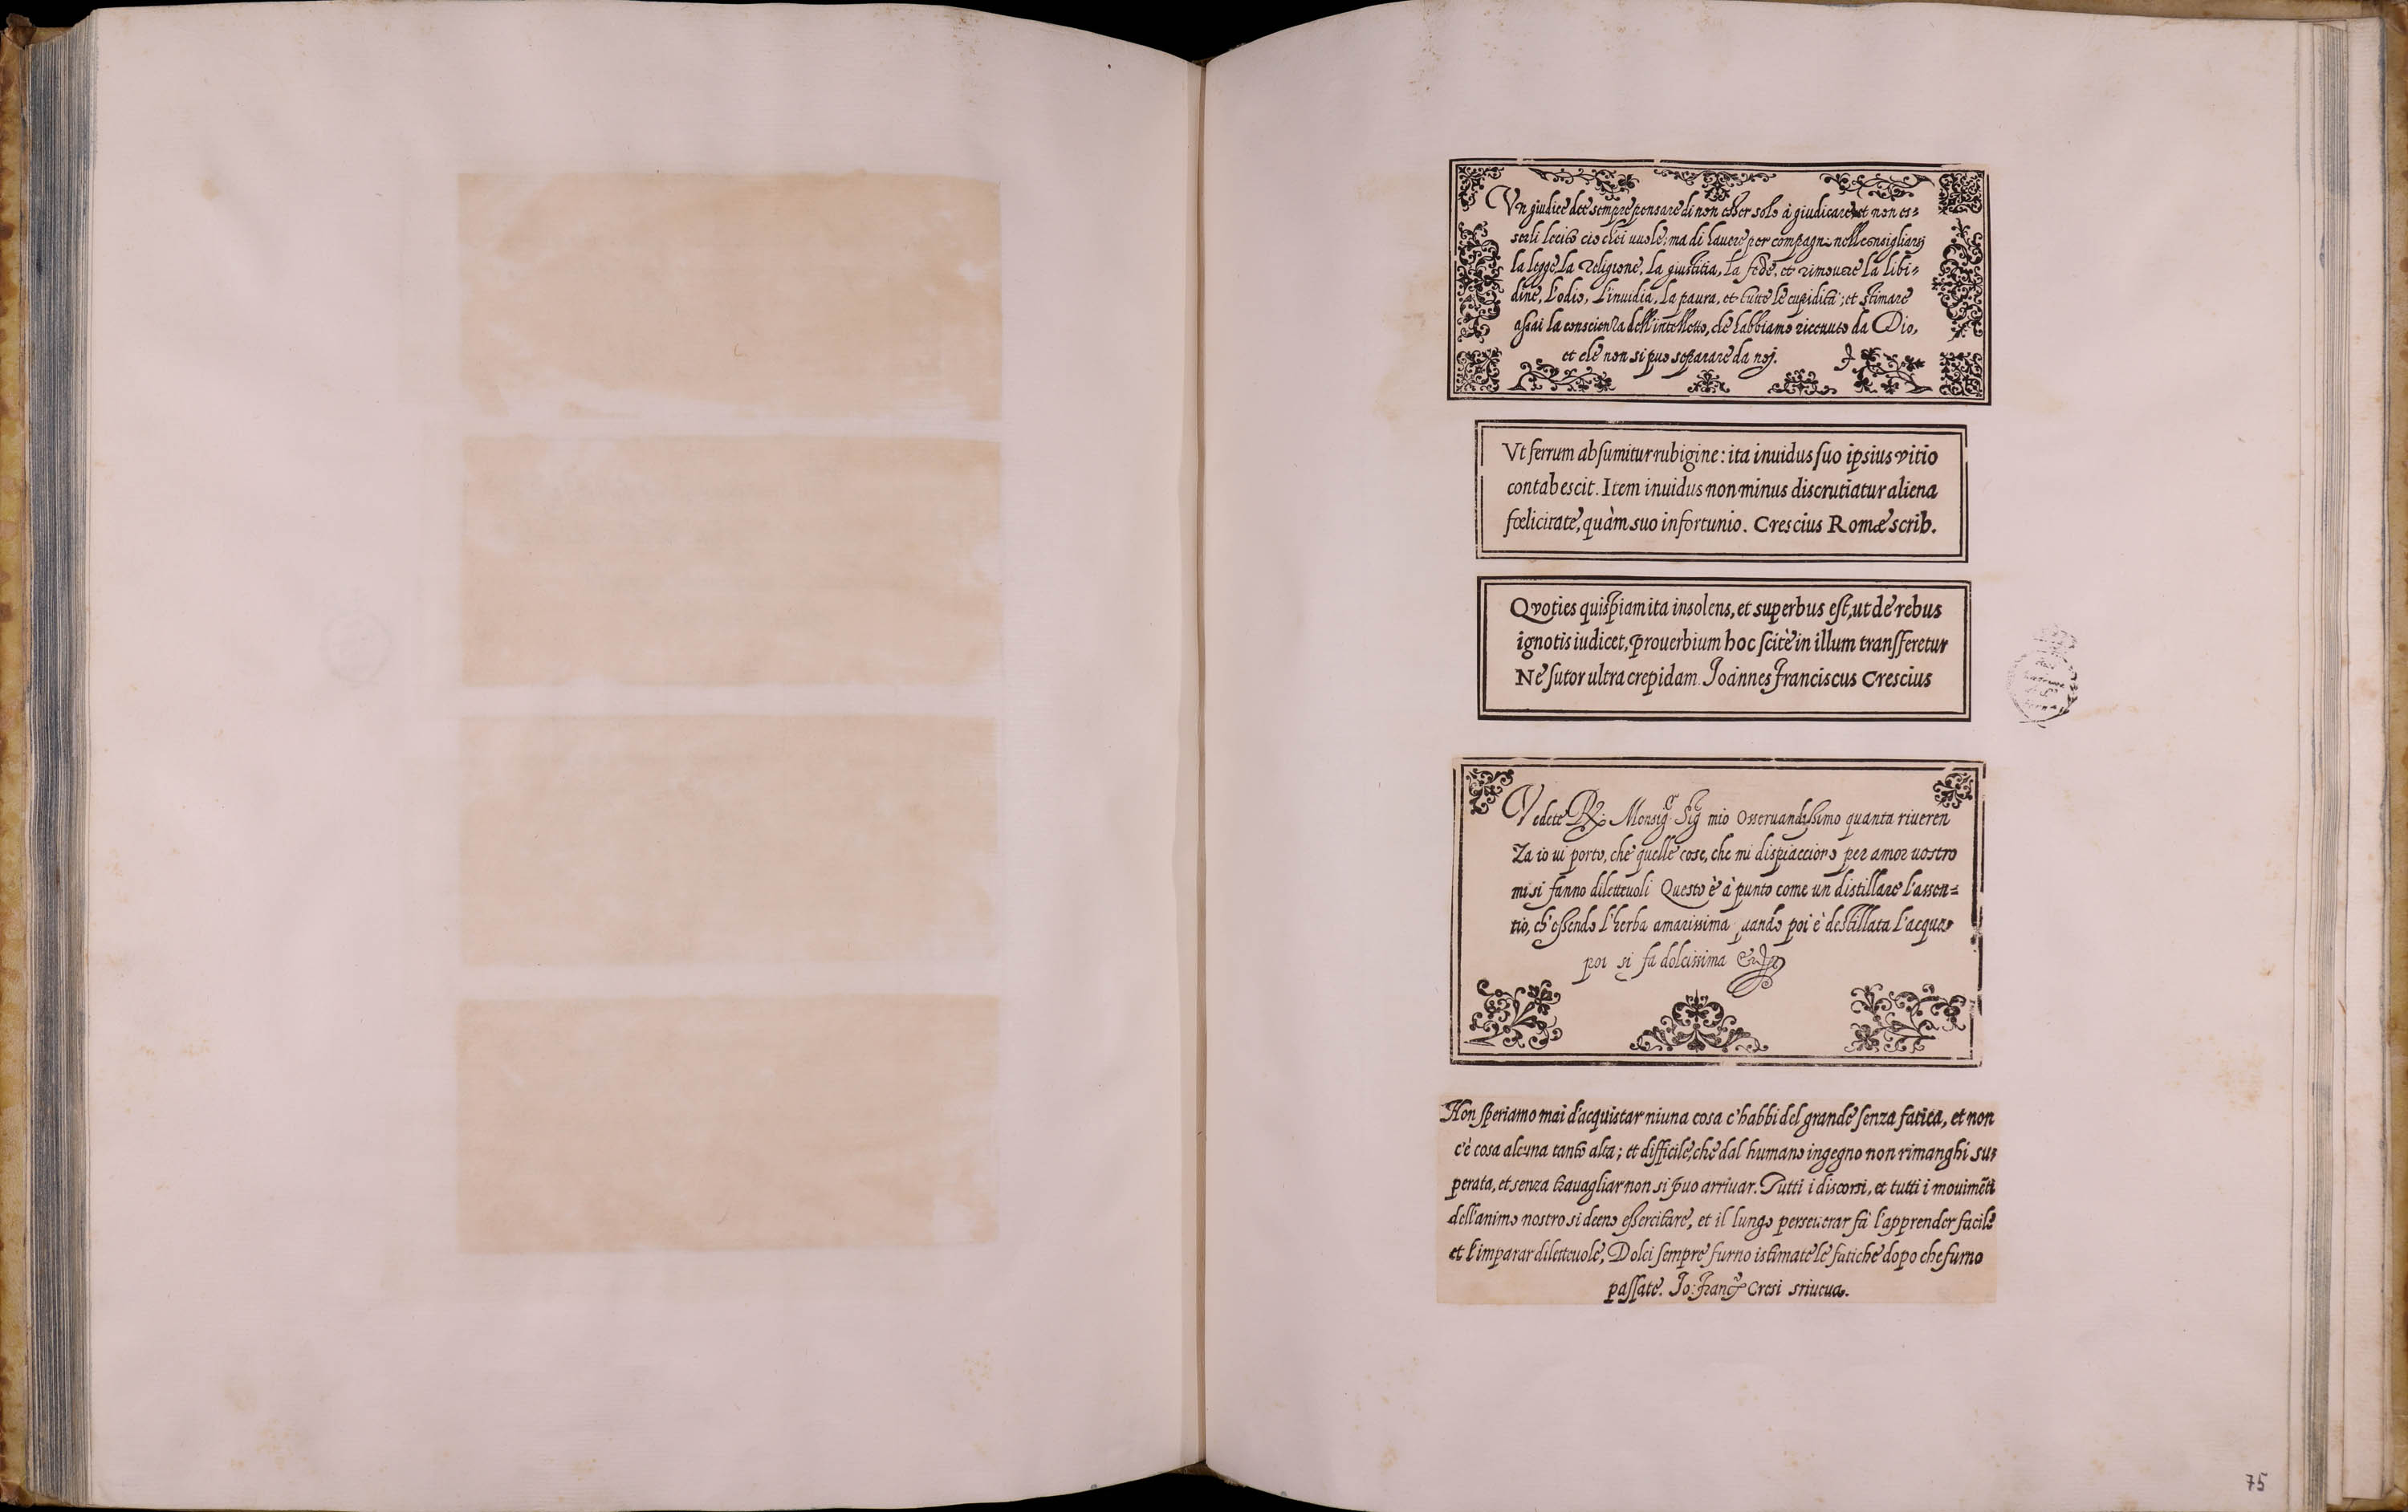 Vn giudice dee sempre pensare di non esser solo à giudicare et non es=
serli lecito cio ch'ei uuole; ma di hauere per compagni nell consigliarsi
la legge, la religione, la giustitia, la fede, et rimouere la libi=
dine, l'odio, l'inuidia, la paura, et tutte le cupidita; et stimare
assai la conscienza dell'intelletto, che habbiamo riceuuto da Dio,
et che non si puo separare da noj.
Vt ferrum absumitur rubigine: ita inuidus suo ipsius vitio
contabescit. Item inuidus non minus discrutiatur aliena
fœlicitate, quàm suo infortunio. Crescius Romæ scrib.
Qvoties quispiam ita insolens, et superbus est, ut de rebus
ignotis iudicet, prouerbium hoc scitè in illum transferetur
Ne sutor ultra crepidam. Joannes Franciscus Crescius
Vedete Monsig. Sig mio osseruandissimo quanta riueren
Za io ui porto, che quelle cose, che mi dispiacciono per amor uostro
mi si fanno diletteuoli Questo è à punto come un distillare l'assen=
tio, ch'essendo l'herba amarissima uando poi è destillata l'acqua
poi si fa dolcissima
Non speriamo mai d'acquistar niuna cosa c'habbi del grande senza fatica, et non
c'è cosa alcuna tanto alta; et difficile, che dal humano ingegno non rimanghi su=
perata, et senza trauagliar non si puo arriuar. Tutti i discorsi, et tutti i mouimẽti
dell'animo nostro si deeno essercitare, et il lungo perseuerar fà l'apprender facile
et l'imparar diletteuole, Dolci sempre furno istimate le fatiche dopo che furno
passate. Jo: Franc. Cresi sriueua.
75